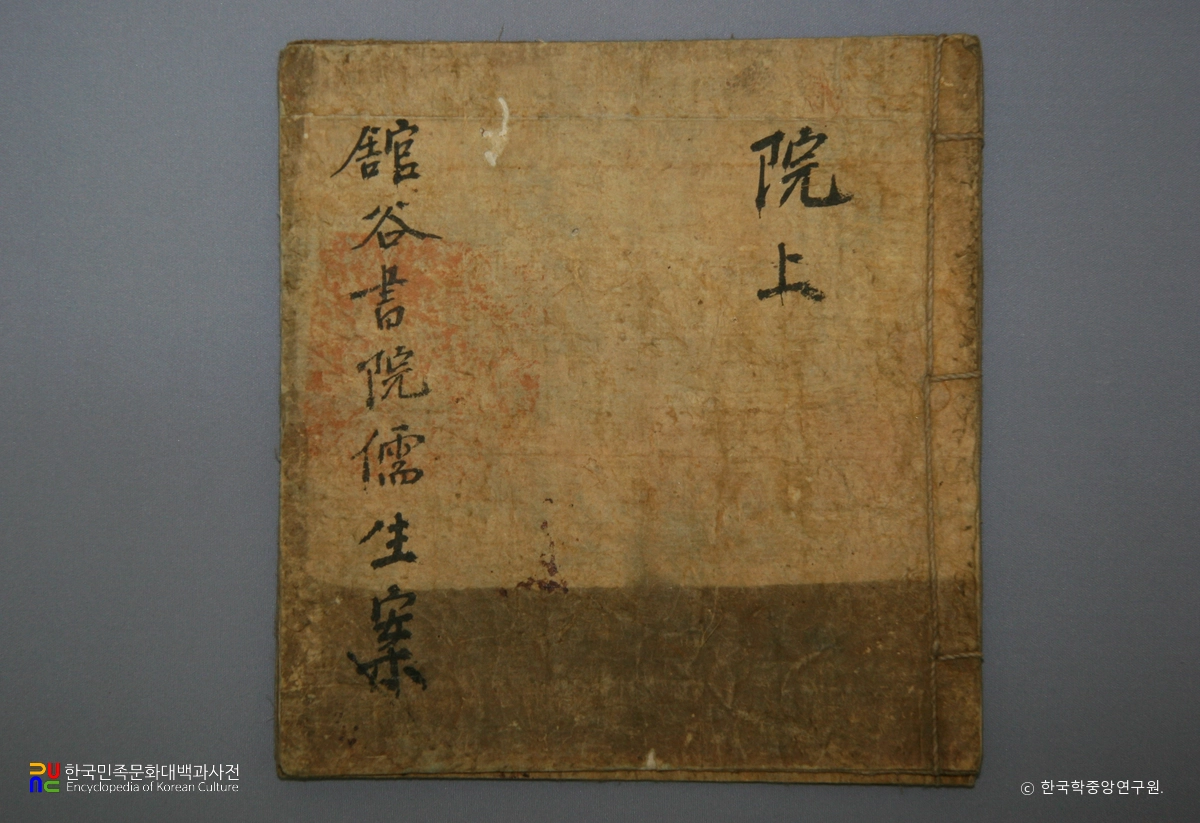 院上
舘谷書院儒生案
한국민족문화대백과사전
Encyclopedia of Korean Culture
ⓒ 한국학중앙연구원.